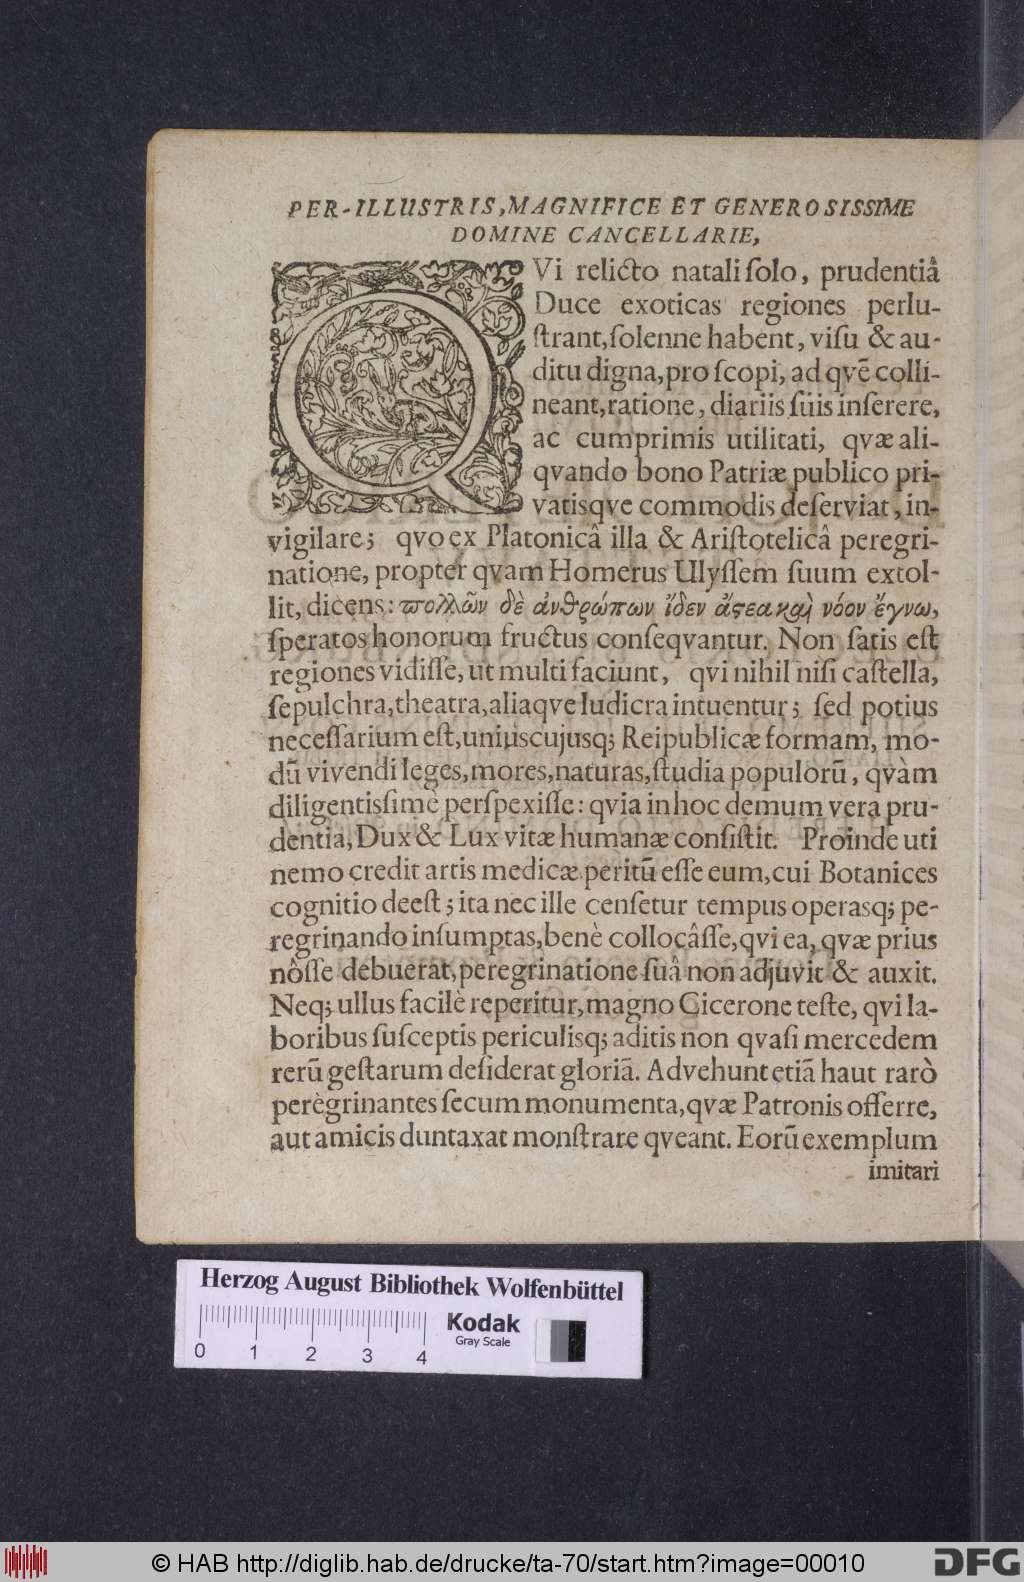 PER-ILLUSTRIS, MAGNIFICE ET GENEROSISSIME
DOMINE CANCELLARIE,
QVi relicto natali ſolo, prudentiâ
Duce exoticas regiones perlu-
ſtrant, ſolenne habent, viſu & au-
ditu digna, pro ſcopi, ad qvẽ colli-
neant, ratione, diariis ſuis inſerere,
ac cumprimis utilitati, qvæ ali-
qvando bono Patriæ publico pri-
vatisqve commodis deſerviat, in-
vigilare; qvo ex Platonicâ illa & Ariſtotelicâ peregri-
natione, propter qvam Homerus Ulyſſem ſuum extol-
lit, dicens: πολλῶν δὲ ἀνθρώπων ἴδεν ἄϛεα καὶ νόον ἔγνω,
ſperatos honorum fructus conſeqvantur. Non ſatis eſt
regiones vidiſſe, ut multi faciunt, qvi nihil niſi caſtella,
ſepulchra, theatra, aliaqve ludicra intuentur; ſed potius
neceſſarium eſt, uniuscujusq; Reipublicæ formam, mo-
dũ vivendi leges, mores, naturas, ſtudia populorũ, qvàm
diligentisſimè perſpexiſſe: qvia in hoc demum vera pru-
dentia, Dux & Lux vitæ humanæ conſiſtit. Proinde uti
nemo credit artis medicæ peritũ eſſe eum, cui Botanices
cognitio deeſt; ita nec ille cenſetur tempus operasq; pe-
regrinando inſumptas, benè collocâſſe, qvi ea, qvæ prius
nôſſe debuerat, peregrinatione ſuâ non adjuvit & auxit.
Neq; ullus facilè reperitur, magno Cicerone teſte, qvi la-
boribus ſuſceptis periculisq; aditis non qvaſi mercedem
rerũ geſtarum deſiderat gloriã. Advehunt etiã haut rarò
perègrinantes ſecum monumenta, qvæ Patronis offerre,
aut amicis duntaxat monſtrare qveant. Eorũ exemplum
imitari
Herzog August Bibliothek Wolfenbüttel
0 1 2 3 4
Kodak
Gray Scale
© HAB http://diglib.hab.de/drucke/ta-70/start.htm?image=00010
DFG